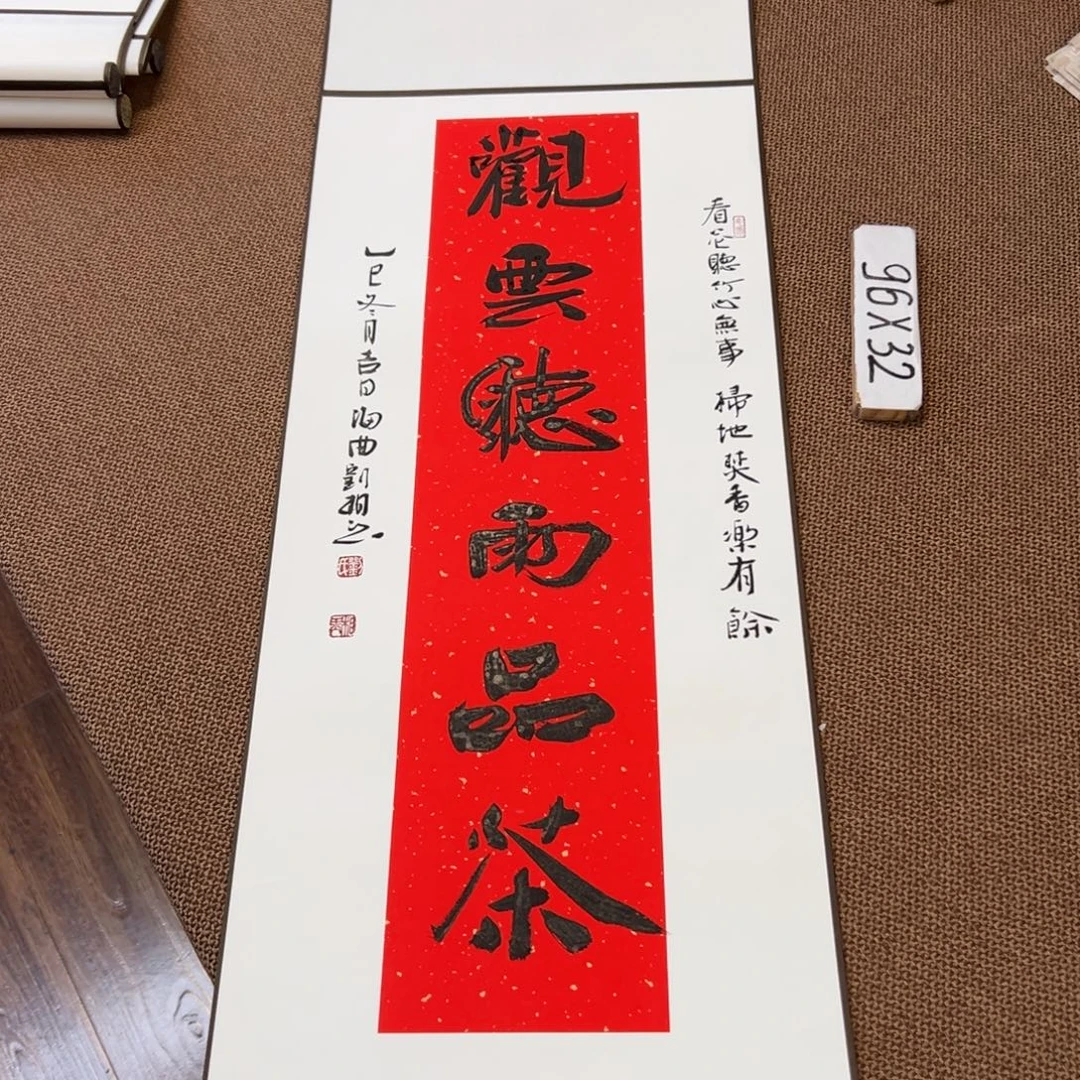 觀雲聽雨品茶
看花聽竹心無事
掃地焚香樂有餘
乙巳冬月吉日海曲劉
96X32